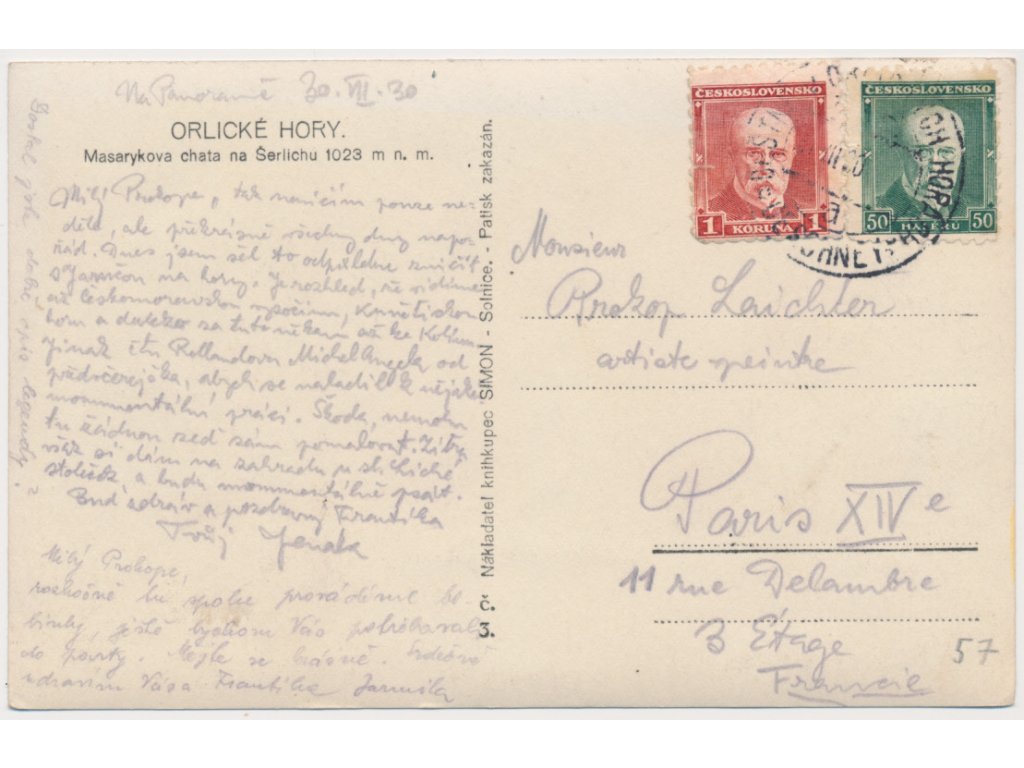 Na Panoramě 30. VII. 30
ORLICKÉ HORY.
Masarykova chata na Šerlichu 1023 m n. m.
Milý Prokope, tak
děle, ale překrásné všechny dny napo-
řád. Dnes jsem šel to odpůldne
s Jarmčou na hory. Je rozhled, že vidíme
až Českomoravskou vysočinu,
horu a daleko za tuto někam až ke Kolínu.
Jinak čtu Rollandova Michelangela od
předvčerejška, abych se naladil k nějaké
monumentální práci. Škoda, nemohu
tu žádnou zeď sám pomalovat. Zítra
však si dám na zahradu
stoleček a budu monumentálně psát.
Buď zdráv a pozdravuj Františka
Tvůj
Milý Prokope,
rozkošně tu spolu provádíme
jistě bychom Vás potřebovali
do party. Mějte se krásně. Srdečně
zdravím Vás a Františka Jarmilka
Dostal jste dobře
legendy?
3. C. Nákladatel knihkupec ŠIMON - Solnice. - Patisk zakázán.
ČESKOSLOVENSKO
1 KORUNA 1
ČESKOSLOVENSKO
50 HALÉŘŮ 50
Monsieur
Prokop Laichter
artiste peintre
Paris XIVe
11 rue Delambre
3 Étage
Francie
57